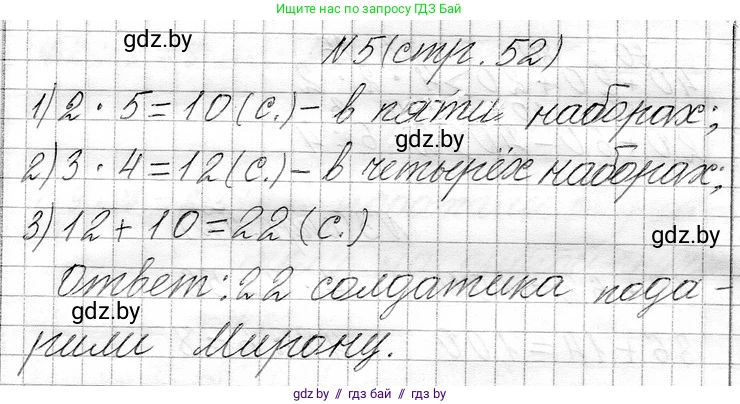 Ищите нас по запросу ГДЗ Бай
gdz.by
N5(стр. 52)
1) 2 · 5 = 10 (с.) - в пяти наборах;
gdz.by
2) 3 · 4 = 12 (с.) - в четырёх наборах;
3) 12 + 10 = 22 (с.)
gdz.by
Ответ: 22 солдатика пода-
gdz.by
рили Мирону.
gdz.by // гдз бай // gdz.by